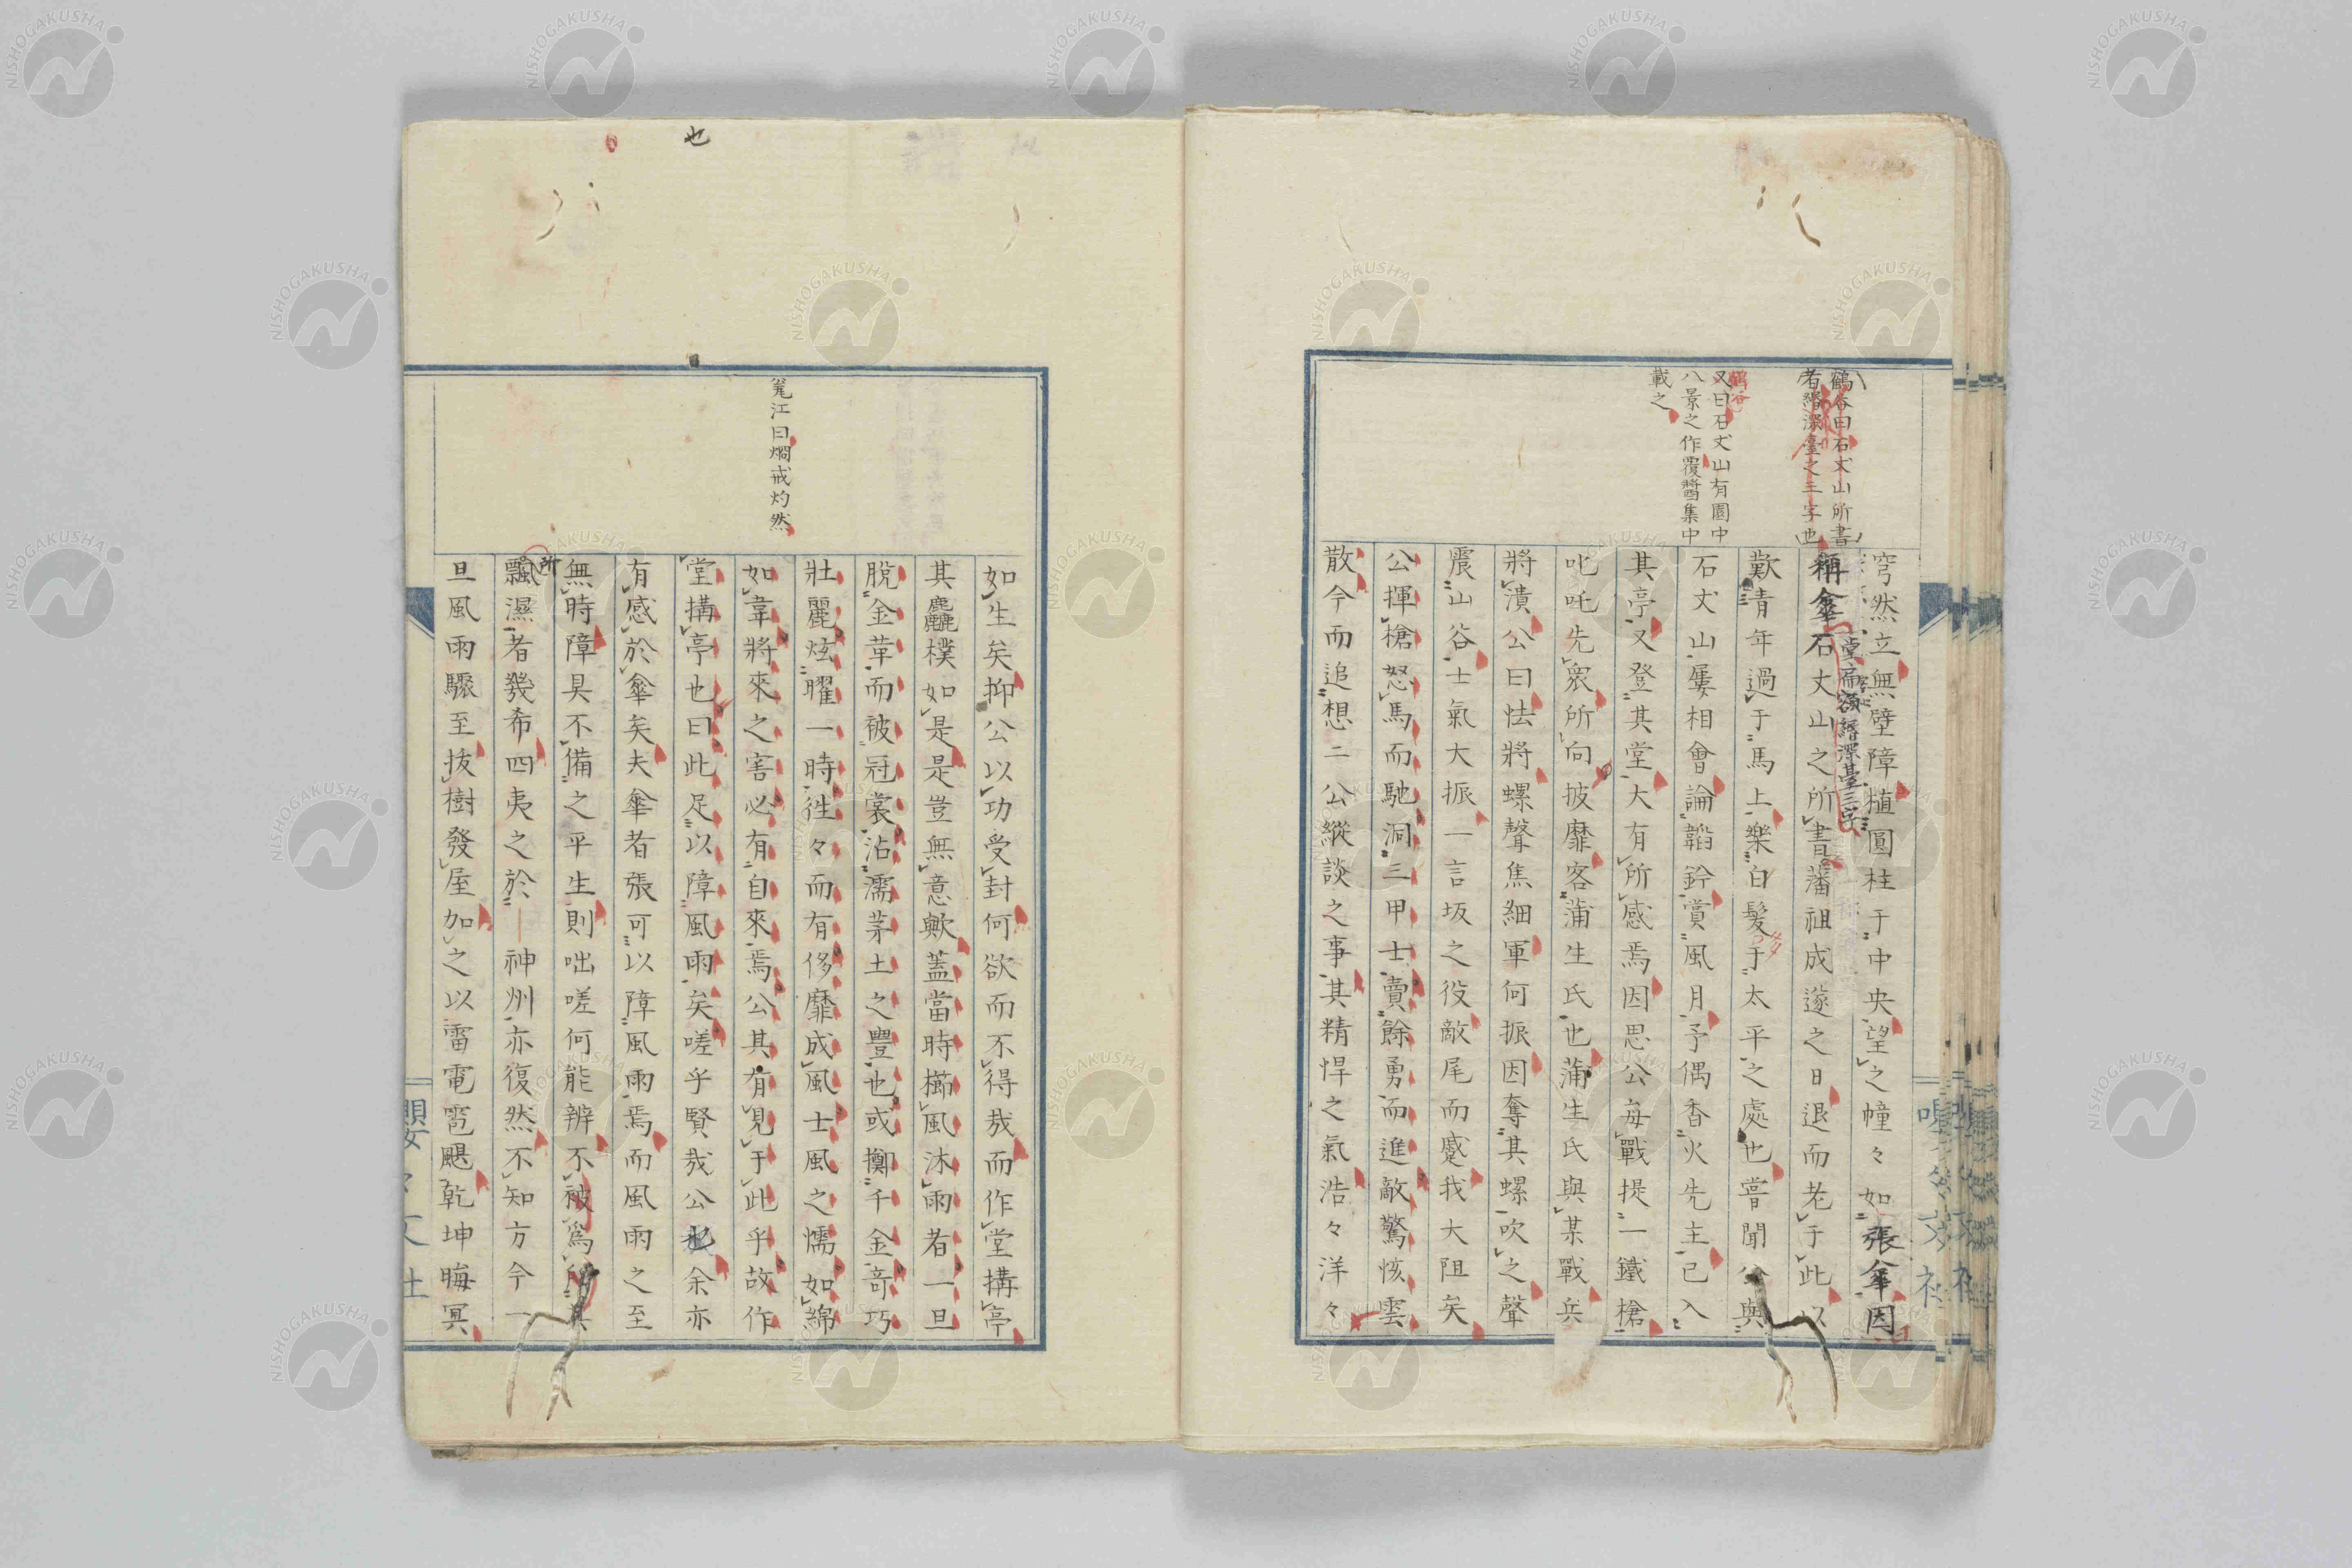 鶴谷曰石丈山所書
者綠深臺之三字也
鶴谷
又曰石丈山有園中
八景之作覆醬集中
載之
穹然立無壁障植圓柱于中央望之幢々如張傘因
稱傘
堂扁額綠深臺三字
石丈山之所書藩祖成遂之日退而老于此以
歎青年過于馬上樂白髮于太平之處也嘗聞公與
石丈山屢相會論韜鈐賞風月予偶香火先主已入
其亭又登其堂大有所感焉因思公每戰提一鐵槍
叱吒先衆所向披靡客蒲生氏也蒲生氏與某戰兵
將潰公曰怯將螺聲焦細軍何振因奪其螺吹之聲
震山谷士氣大振一言坂之役敵尾而蹙我大阻矣
公揮槍怒馬而馳洞三甲士賣餘勇而進敵驚駭雲
散今而追想二公縱談之事其精悍之氣浩々洋々
嚶々文社
也
篦江曰烱戒灼然
如生矣抑公以功受封何欲而不得哉而作堂搆亭
其麤樸如是是豈無意歟蓋當時櫛風沐雨者一旦
脫金革而被冠裳沾濡茅土之豐也或擲千金奇巧
壯麗炫曜一時徃々而有侈靡成風士風之懦如綿
如韋將來之害必有自來焉公其有見于此乎故作
堂搆亭也曰此足以障風雨矣嗟乎賢哉公也余亦
有感於傘矣夫傘者張可以障風雨焉而風雨之至
無時障具不備之平生則咄嗟何能辨不被爲其
所
飄濕者幾希四夷之於神州亦復然不知方今一
旦風雨驟至拔樹發屋加之以雷電雹颶乾坤晦冥
嚶々文社